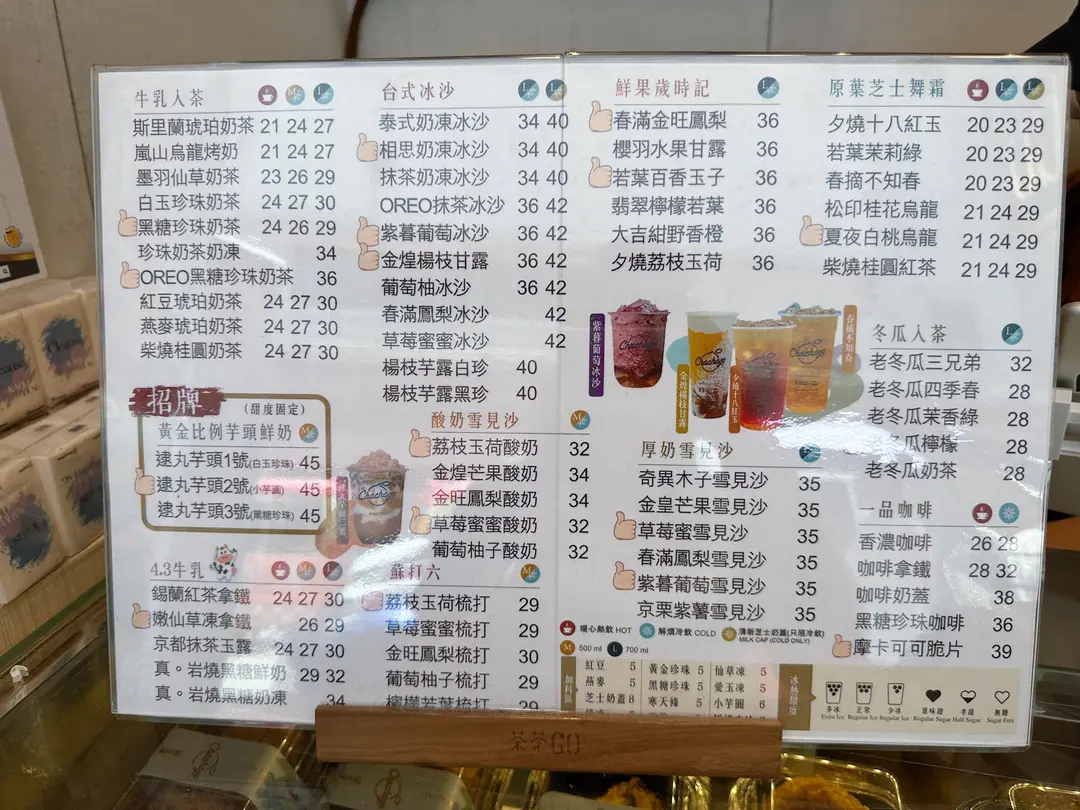 牛乳入茶
斯里蘭琥珀奶茶 21 24 27
嵐山烏龍烤奶 21 24 27
墨羽仙草奶茶 23 26 29
白玉珍珠奶茶 24 27 30
黑糖珍珠奶茶 24 26 29
珍珠奶茶奶凍 34
OREO黑糖珍珠奶茶 36
紅豆琥珀奶茶 24 27 30
燕麥琥珀奶茶 24 27 30
柴燒桂圓奶茶 24 27 30
招牌 (甜度固定)
黃金比例芋頭鮮奶 M
逮丸芋頭1號(白玉珍珠) 45
逮丸芋頭2號(小芋圓) 45
逮丸芋頭3號(黑糖珍珠) 45
4.3牛乳 M L
錫蘭紅茶拿鐵 24 27 30
嫩仙草凍拿鐵 26 29
京都抹茶玉露 24 30
真。岩燒黑糖鮮奶 29 32
真。岩燒黑糖奶凍 34
台式冰沙 L L
泰式奶凍冰沙 34 40
相思奶凍冰沙 34 40
抹茶奶凍冰沙 34 40
OREO抹茶冰沙 36 42
紫暮葡萄冰沙 36 42
金煌楊枝甘露 36 42
葡萄柚冰沙 36 42
春滿鳳梨冰沙 42
草莓蜜蜜冰沙 42
楊枝芋露白珍 40
楊枝芋露黑珍 40
酸奶雪見沙 M
荔枝玉荷酸奶 32
金煌芒果酸奶 34
金旺鳳梨酸奶 34
草莓蜜蜜酸奶 32
葡萄柚子酸奶 32
蘇打六 M
荔枝玉荷梳打 29
草莓蜜蜜梳打 29
金旺鳳梨梳打 30
葡萄柚子梳打 29
檸檬若葉梳打 29
鮮果歲時記 L
春滿金旺鳳梨 36
櫻羽水果甘露 36
若葉百香玉子 36
翡翠檸檬若葉 36
大吉紺野香橙 36
夕燒荔枝玉荷 36
紫暮葡萄冰沙
金煌楊枝甘露
夕燒十八紅玉
春摘不知春
Chachago
厚奶雪見沙 L
奇異木子雪見沙 35
金皇芒果雪見沙 35
草莓蜜雪見沙 35
春滿鳳梨雪見沙 35
紫暮葡萄雪見沙 35
京栗紫薯雪見沙 35
暖心熱飲 HOT 解煩冷飲 COLD 清新芝士奶蓋(只限冷飲) MILK CAP (COLD ONLY)
M 500 ml L 700 ml
加料區
紅豆 5 黃金珍珠 5 仙草凍 5
燕麥 5 黑糖珍珠 5 愛玉凍 5
芝士奶蓋 8 寒天條 5 小芋圓 6
原葉芝士舞霜 L L
夕燒十八紅玉 20 23 29
若葉茉莉綠 20 23 29
春摘不知春 20 23 29
松印桂花烏龍 21 24 29
夏夜白桃烏龍 21 24 29
柴燒桂圓紅茶 21 24 29
冬瓜入茶 L
老冬瓜三兄弟 32
老冬瓜四季春 28
老冬瓜茉香綠 28
冬瓜檸檬 28
老冬瓜奶茶 28
一品咖啡
香濃咖啡 26 28
咖啡拿鐵 28 32
咖啡奶蓋 38
黑糖珍珠咖啡 36
摩卡可可脆片 39
冰熱甜度
多冰 正常 少冰 原味甜 半甜 無糖
Extra Ice Regular Ice Regular Ice Regular Sugar Half Sugar Sugar Free
茶茶GO